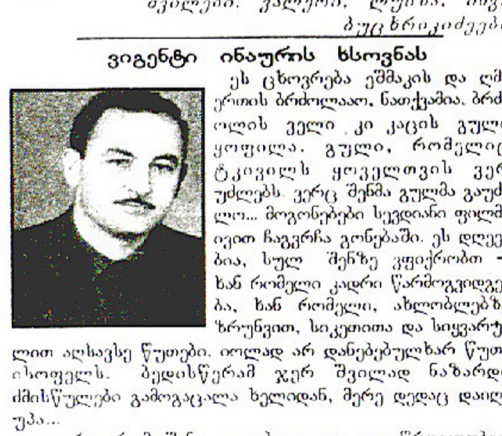 შვილები: ვალერი,
ბუცხრიკიძეები
ვიგენტი ინაურის ხსოვნას
ეს ცხოვრება ეშმაკის და ღმ
ერთის ბრძოლააო, ნათქვამია. ბრძ
ოლის ველი კი კაცის გული
ყოფილა. გული, რომელიც
ტკივილს ყოველთვის ვერ
უძლებს. ვერც შენმა გულმა გაუძ
ლო... მოგონებები სევდიანი ფილმ
ივით ჩაგვრჩა გონებაში. ეს დღეე
ბია, სულ შენზე ვფიქრობთ -
ხან რომელი კადრი წარმოგვიდგე
ბა, ხან რომელი, ახლობლებზ
ზრუნვით, სიკეთითა და სიყვარუ
ლით აღსავსე წუთები. იოლად არ დანებებულხარ წუთ
ისოფელს. ბედისწერამ ჯერ შვილად ნაზარდ
ძმისწულები გამოგაცალა ხელიდან, მერე დედაც დაიღ
უპა...